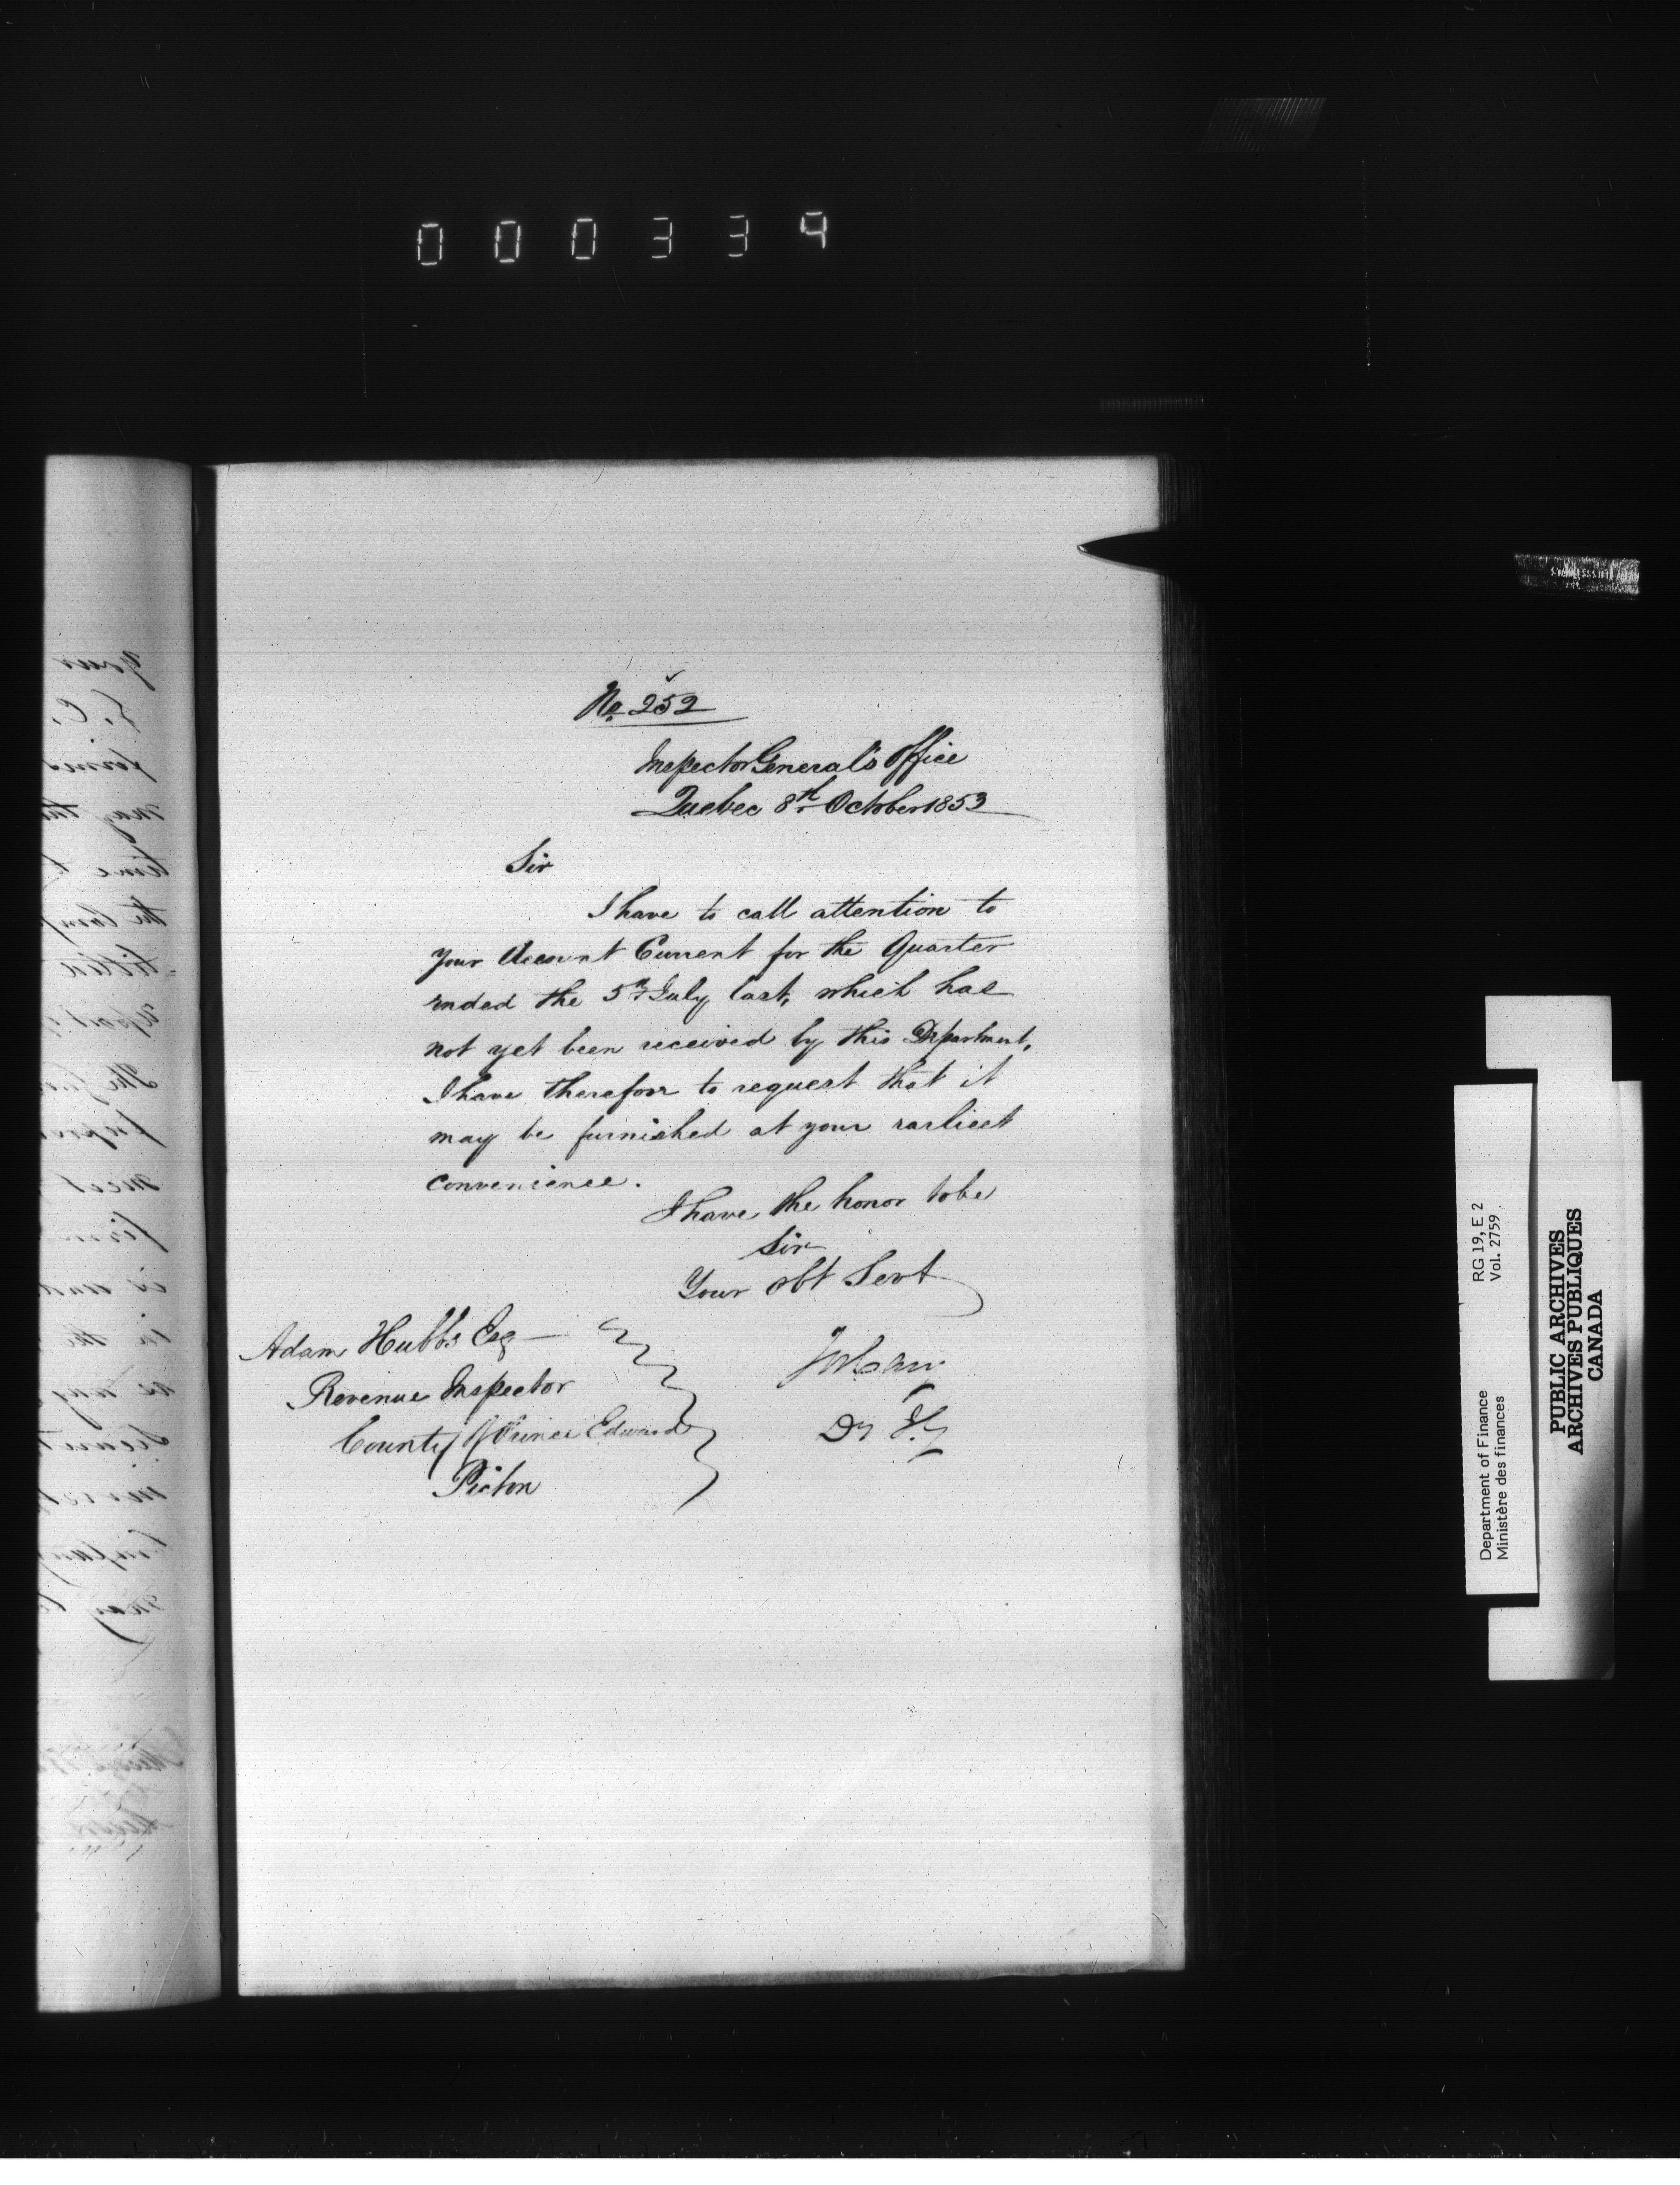 000339
No. 252
Inspector General's Office
Quebec 8th October 1853
Sir
I have to call attention to
your Account Current for the Quarter
ended the 5th July last, which has
not yet been received by this Department,
I have therefore to request that it
may be furnished at your earliest
convenience.
I have the honor to be
Sir
Your obt Servt
Adam Hubbs Esq
Revenue Inspector
County of Prince Edward
Picton
Department of Finance RG 19, E 2
Ministère des finances Vol. 2759
PUBLIC ARCHIVES
ARCHIVES PUBLIQUES
CANADA